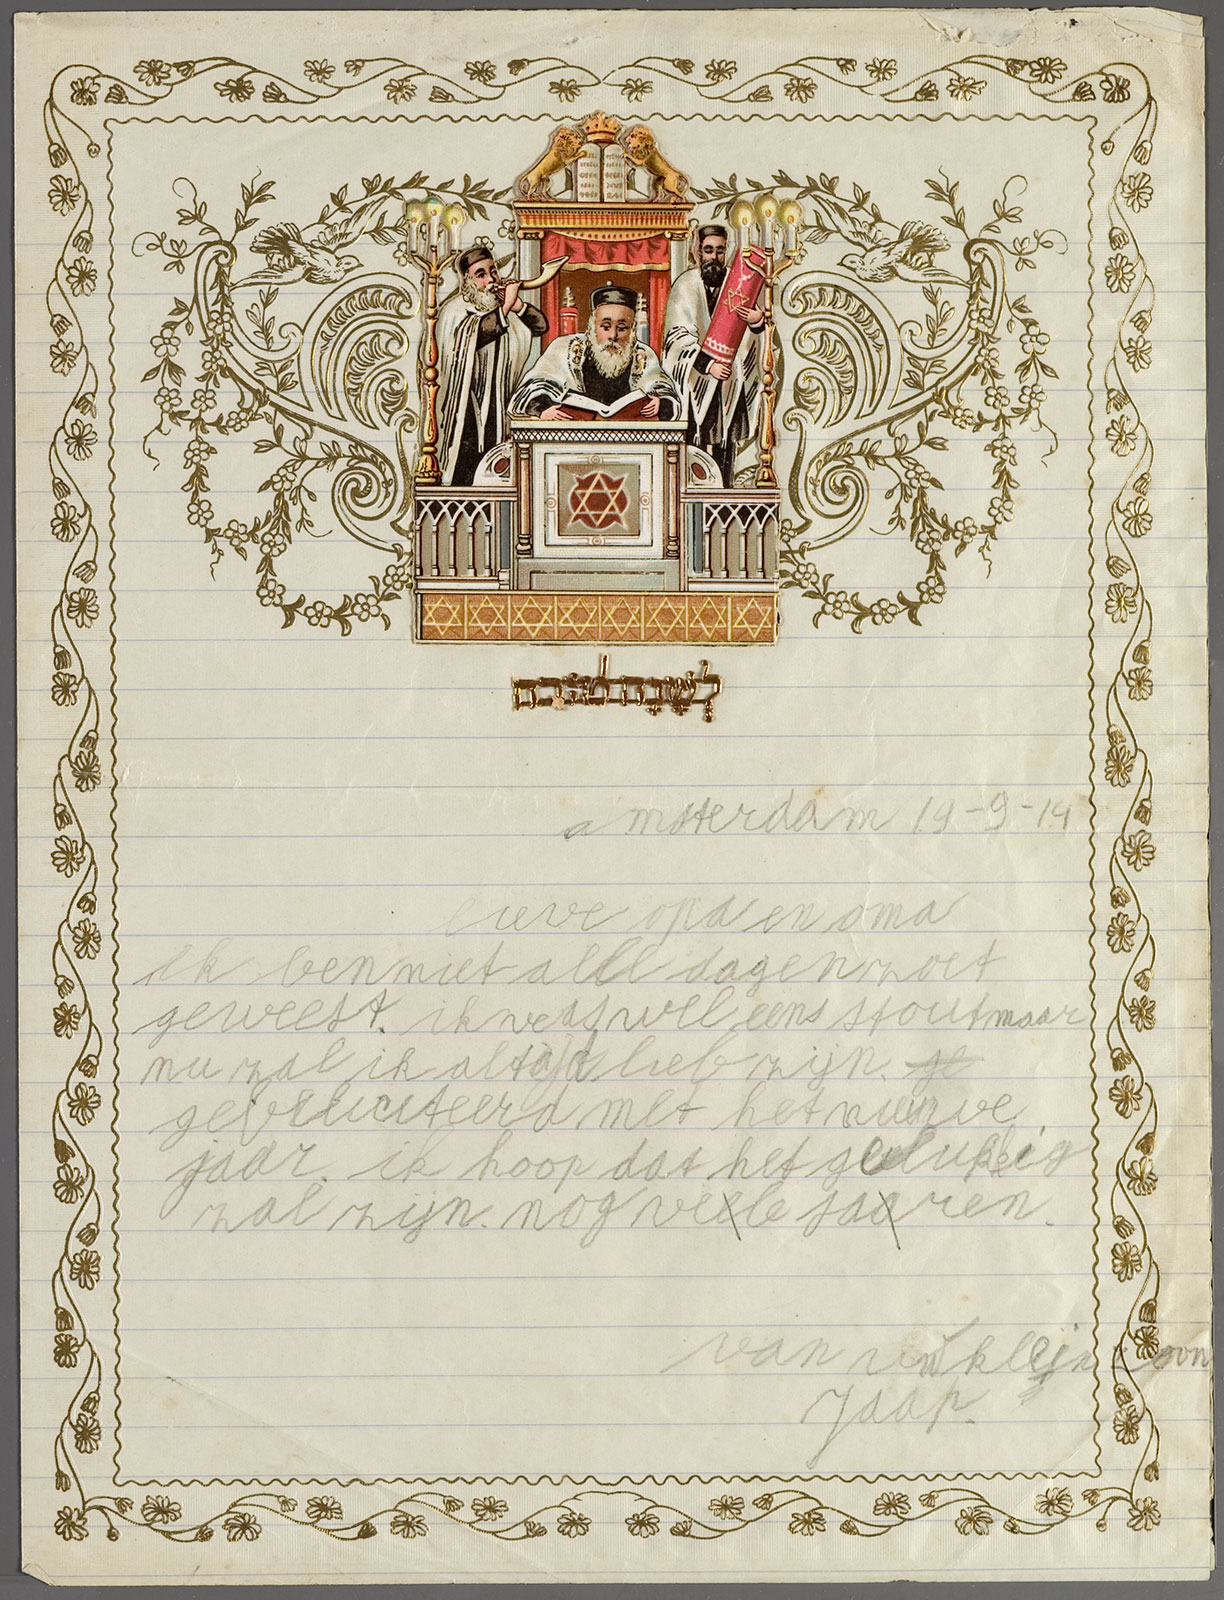 לשנה טובה
amsterdam 19-9-14
lieve opa en oma
ik ben niet alle dagen zoet
geweest. ik was wel eens stout maar
nu zal ik altijd lief zijn. ge
geveliciteerd met het nieuwe
jaar. ik hoop dat het gelukkig
zal zijn. nog veele jaaren.
van uw kleinzoon
Jaap.